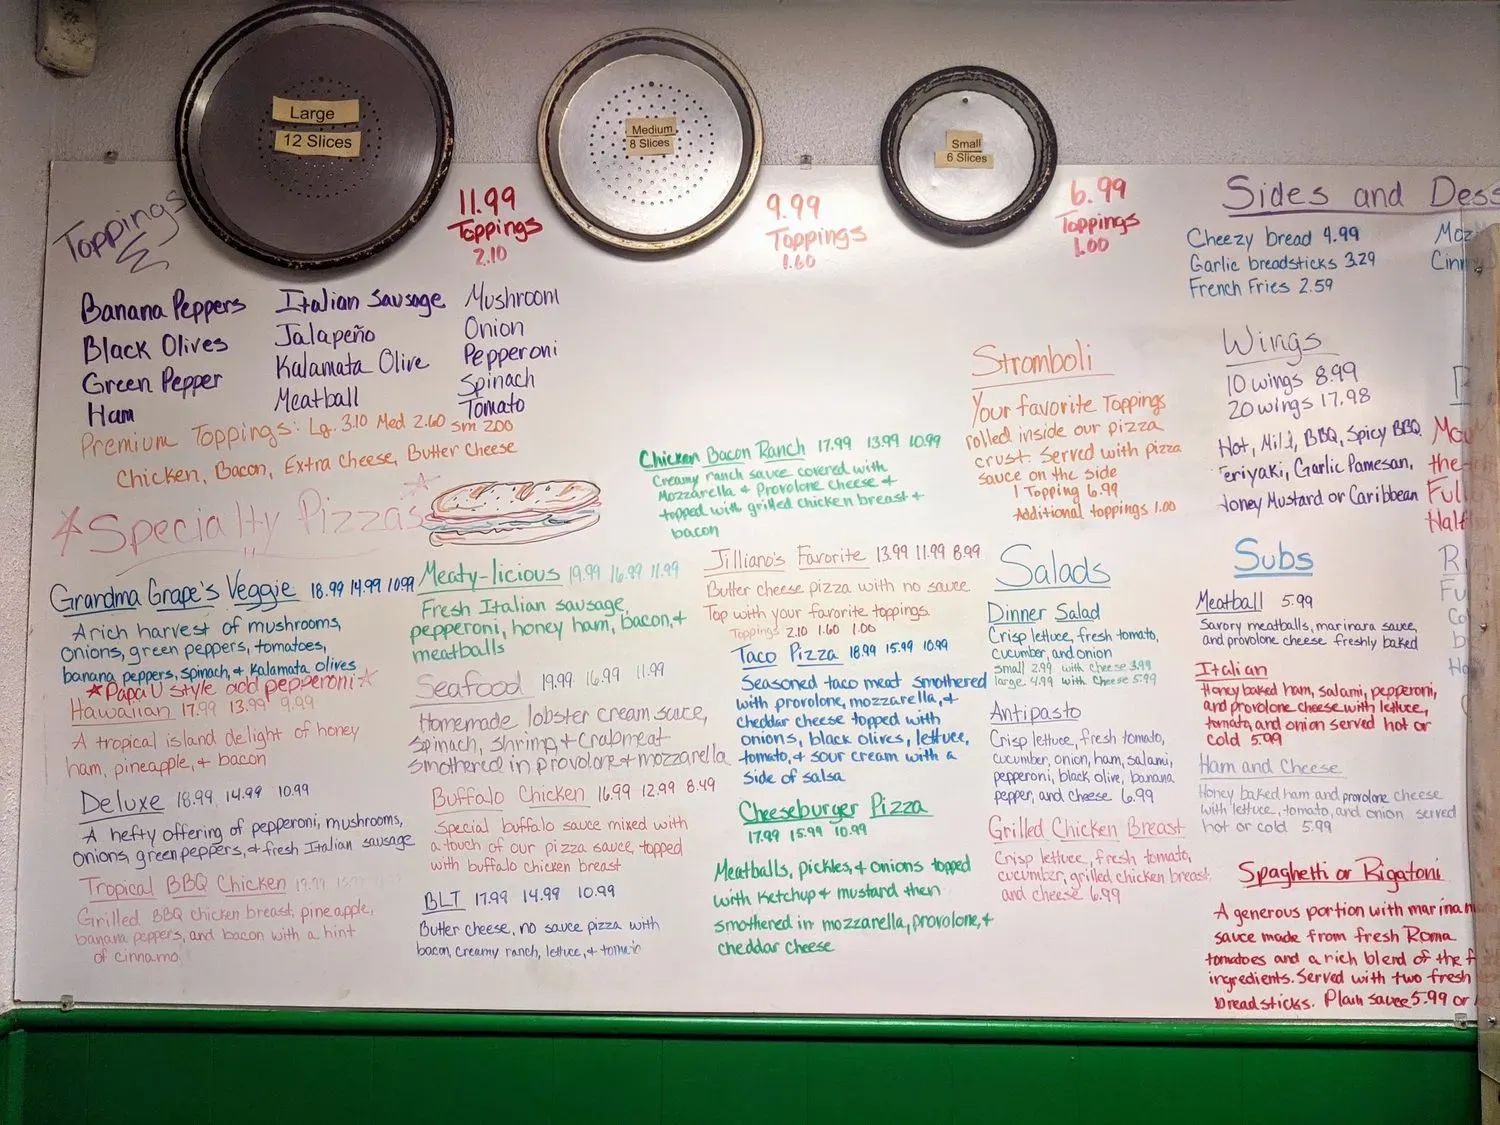 Large
12 Slices
Medium
8 Slices
Small
6 Slices
Toppings
11.99
Toppings
2.10
9.99
Toppings
1.60
6.99
Toppings
1.00
Banana Peppers
Black Olives
Green Pepper
Ham
Italian Sausage
Jalapeño
Kalamata Olive
Meatball
Mushroom
Onion
Pepperoni
Spinach
Tomato
Premium Toppings: Lg. 3.10 Med 2.60 Sm 2.00
Chicken, Bacon, Extra Cheese, Butter Cheese
Specialty Pizzas
Grandma Grape's Veggie 18.99 14.99 10.99
A rich harvest of mushrooms,
onions, green peppers, tomatoes,
banana peppers, spinach, + Kalamata olives
Papa U style add pepperoni
Hawaiian 17.99 13.99 9.99
A tropical island delight of honey
ham, pineapple, + bacon
Deluxe 18.99 14.99 10.99
A hefty offering of pepperoni, mushrooms,
onions, green peppers, + fresh Italian sausage
Tropical BBQ Chicken
Grilled BBQ chicken breast, pineapple,
banana peppers, and bacon with a hint
of cinnamo
Meaty-licious 19.99 16.99 11.99
Fresh Italian sausage,
pepperoni, honey ham, bacon, +
meatballs
Seafood 19.99 16.99 11.99
Homemade lobster cream sauce,
Spinach, shrimp + Crabmeat
smothered in provolone + mozzarella
Buffalo Chicken 16.99 12.99 8.49
Special buffalo sauce mixed with
a touch of our pizza sauce, topped
with buffalo chicken breast
BLT 17.99 14.99 10.99
Butter cheese, no sauce pizza with
bacon, creamy ranch, lettuce, + tomato
Chicken Bacon Ranch 17.99 13.99 10.99
Creamy ranch sauce covered with
Mozzarella + Provolone cheese +
topped with grilled chicken breast +
bacon
Jilliano's Favorite 13.99 11.99 8.99
Butter cheese pizza with no sauce
Top with your favorite toppings.
Toppings 2.10 1.60 1.00
Taco Pizza 18.99 15.99 10.99
Seasoned taco meat smothered
with provolone, mozzarella, +
cheddar cheese topped with
onions, black olives, lettuce,
tomato, + sour cream with a
side of salsa
Cheeseburger Pizza
17.99 15.99 10.99
Meatballs, pickles, + onions topped
with ketchup + mustard then
smothered in mozzarella, provolone, +
cheddar cheese
Stromboli
Your favorite Toppings
rolled inside our pizza
crust. Served with pizza
sauce on the side
1 Topping 6.99
Additional toppings 1.00
Salads
Dinner Salad
Crisp lettuce, fresh tomato,
cucumber, and onion
small 2.99 with cheese 3.99
large 4.99 with cheese 5.99
Antipasto
Crisp lettuce, fresh tomato,
cucumber, onion, ham, salami,
pepperoni, black olive, banana
pepper, and cheese 6.99
Grilled Chicken Breast
Crisp lettuce, fresh tomato,
cucumber, grilled chicken breast
and cheese 6.99
Sides and Dess
Cheezy bread 4.99
Garlic breadsticks 3.29
French Fries 2.59
Moz
Cinn
Wings
10 wings 8.99
20 wings 17.98
Hot, Mild, BBQ, Spicy BBQ
Teriyaki, Garlic Pamesan,
Honey Mustard or Caribbean
Subs
Meatball 5.99
Savory meatballs, marinara sauce,
and provolone cheese freshly baked
Italian
Honey baked ham, salami, pepperoni,
and provolone cheese with lettuce,
tomato, and onion served hot or
cold 5.99
Ham and Cheese
Honey baked ham and provolone cheese
with lettuce, tomato, and onion served
hot or cold 5.99
Spaghetti or Rigatoni
A generous portion with marinara
sauce made from fresh Roma
tomatoes and a rich blend of the f
ingredients. Served with two fresh
breadsticks. Plain sauce 5.99 or